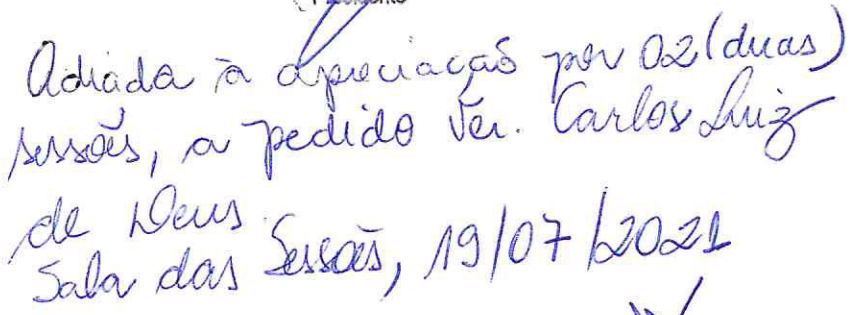 Presidente
Adiada a apreciação por 02 (duas)
sessões, a pedido Ver. Carlos Luiz
de Deus.
Sala das Sessões, 19/07/2021